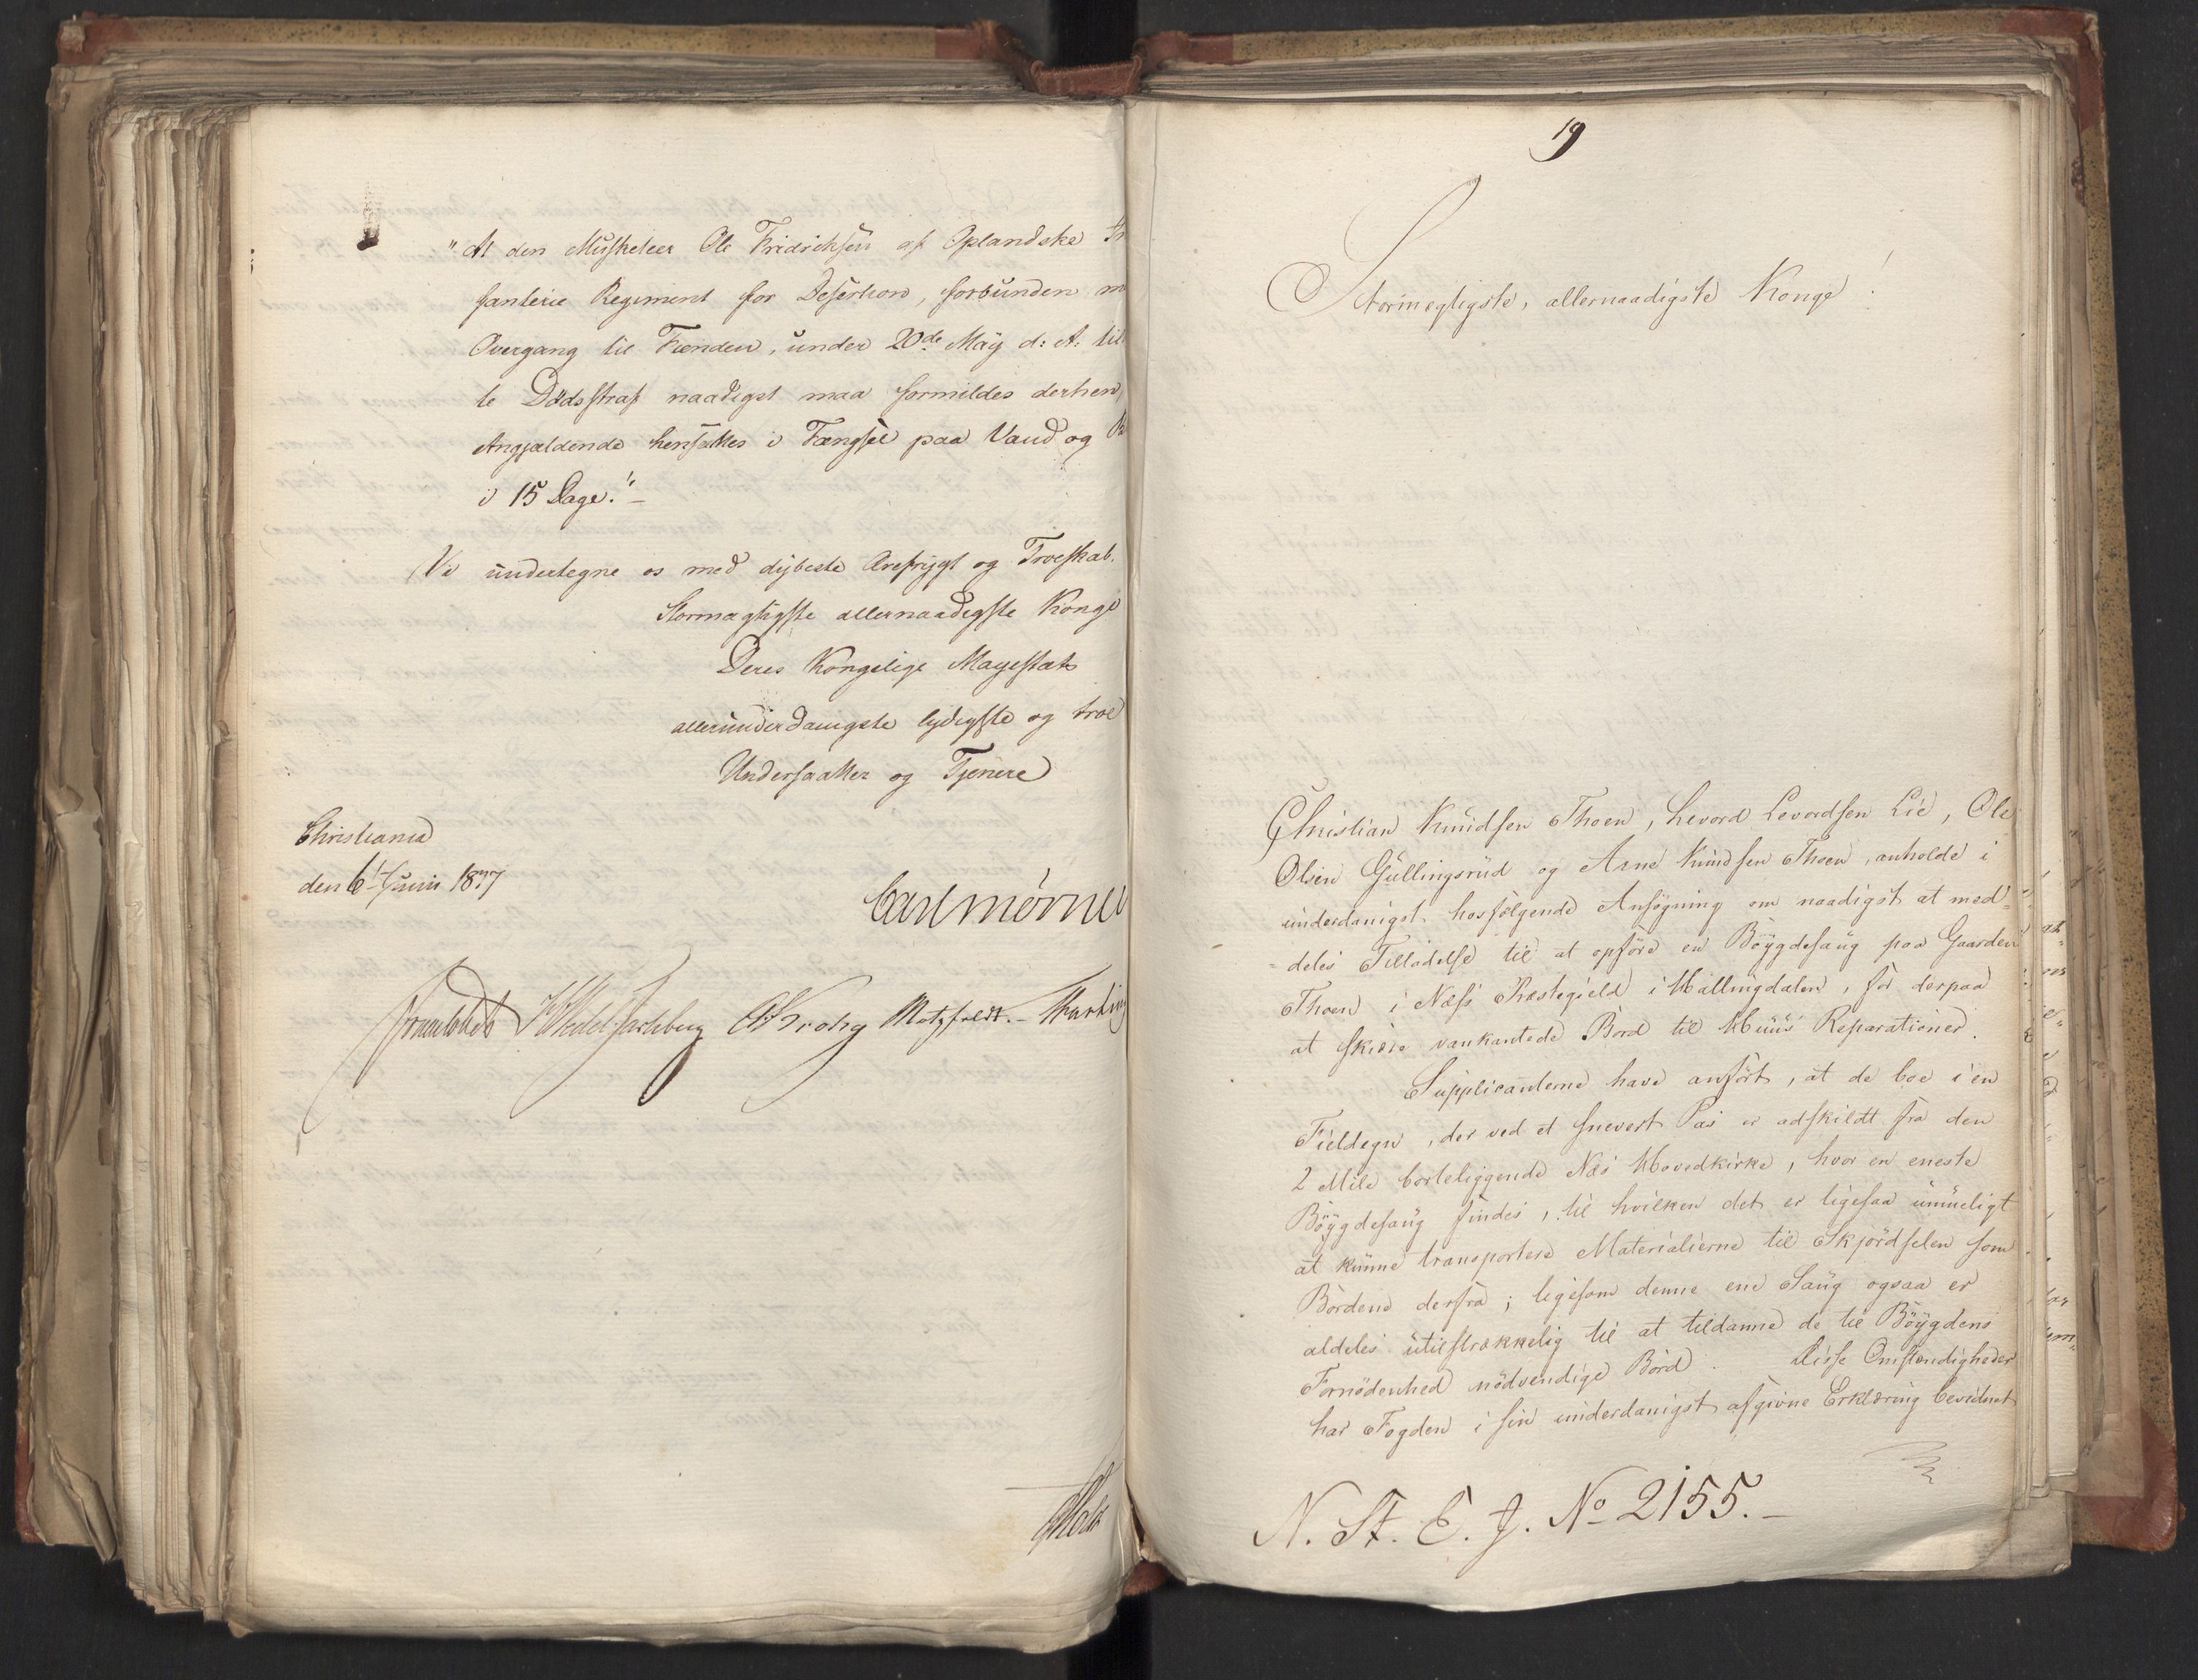 "At den Musketeer Ole Fridrichsen af Oplandske
fanterie Regiment for Desertion, forbunden m
Overgang til Fienden, under 20de May d: A: til
te Dødsstraf naadigst maa formildes derhen,
Angjældende hensættes i Fængsel paa Vand og
i 15 Dage."
Vi undertegne os med dybeste Ærefrygt og Troeskab.
Stormægtigste allernaadigste Konge
Deres Kongelige Mayestæts
allerunderdanigste lydigste og troe
Undersaatter og Tjenere
Christiania
den 6te Juni 1817
Carl Mörner
Sommerhielm Wedel Jarlsberg Krohg Motzfeldt. Hasting
Holst
19
Stormægtigste, allernaadigste Konge!
Christian Knudsen Thoen, Levord Levordsen Lie, Ole
Olsen Gullingsrud og Arne Knudsen Thoen, anholde i
underdanigst hosfølgende Ansøgning om naadigst at med=
deles Tilladelse til at opføre en Bøygdesaug paa Gaarden
Thoen i Næss Præstegield i Hallingdalen, for derpaa
at skiære vankantede Bord til Huus Reparationer.
Supplicanterne have anført, at de boe i en
Fieldegn, der ved et snevert Pas er adskildt fra den
2 Mile bortliggende Næs Hovedkirke, hvor en eneste
Bøygdesaug findes, til hvilken det er ligesaa umueligt
at kunne transportere Materialierne til Skjørdselen som
Bordene derfra; ligesom denne ene Saug ogsaa er
aldeles utilstrækkelig til at tildanne de til Bøygdens
Fornødenhed nødvendige Bord. Disse Omstændigheder
har Fogden i sin underdanigst afgivne Erklæring bevidnet
N. St. E. J. No 2155.